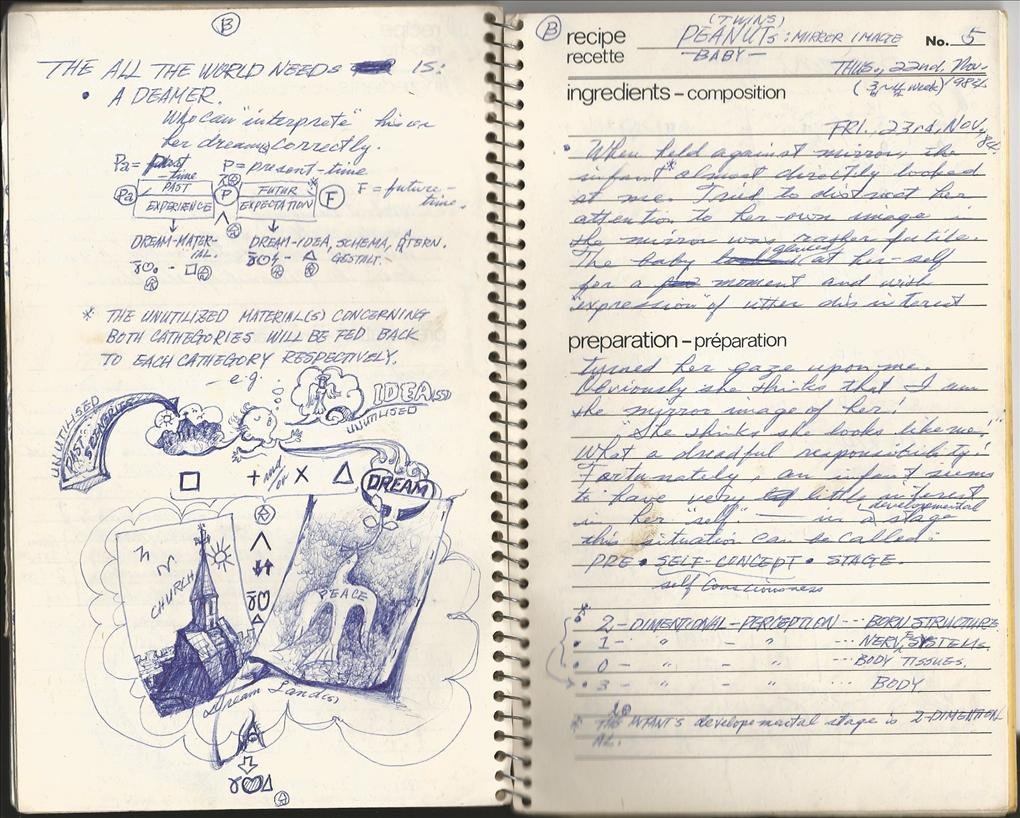 B
THE ALL THE WORLD NEEDS IS:
• A DEAMER.
Who can "interpret" his or
her dream(s) correctly.
Pa = past-time P = present-time
F = future-time.
Pa PAST EXPERIENCE P FUTUR EXPECTATION F
DREAM-MATERIAL. DREAM-IDEA, SCHEMA,
GESTALT.
* THE UNUTILIZED MATERIAL(S) CONCERNING
BOTH CATHEGORIES WILL BE FED BACK
TO EACH CATHEGORY RESPECTIVELY.
— e.g.
UNUTILISED
PAST SCENERIES
IDEA(SS)
UNUTILISED
+ and/or X
DREAM
CHURCH
PEACE
Dream Land(s)
B
recipe
recette
(TWINS)
PEANUTS: MIRROR IMAGE
— BABY —
No. 5
THUS, 22nd. Nov.
(3~4 week) 1984.
ingredients – composition
FRI. 23rd, NOV, 84.
• When held against mirror, the
infant* almost directly looked
at me. Tried to distract her
attention to her-own image in
the mirror was rather futile.
The baby glanced at her-self
for a moment and with
"expression" of utter disinterest
preparation – préparation
turned her gaze upon me.
Obviously she thinks that I am
the mirror image of her!
"She thinks she looks like me!"
What a dreadful responsibility!
Fortunately, an infant seems
to have very little interest
in her "self." — in a developmental stage
this situation can be called:
PRE • SELF-CONCEPT • STAGE.
self Consciousness
* 2 - DIMENTIONAL - PERCEPTION --- BORN STRUCTURE.
• 1 - " - " --- NERVE SYSTEMS.
• 0 - " - " --- BODY TISSUES.
• 3 - " - " --- BODY
* THE INFANT'S developemental stage is 2-DIMENTION
AL.